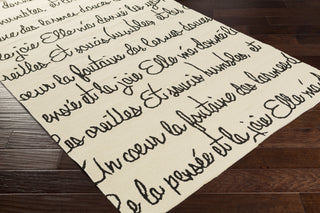 des larmes douces
humbles, et
la joie Elle m'a donné les yeux
oreilles Et soucis humbles et
coeur la fontaine des larmes douces
pensée et la joie Elle m'a donné
les oreilles Et soucis humbles, et
Un coeur la fontaine des larmes d
De la pensée et la joie Elle m'a